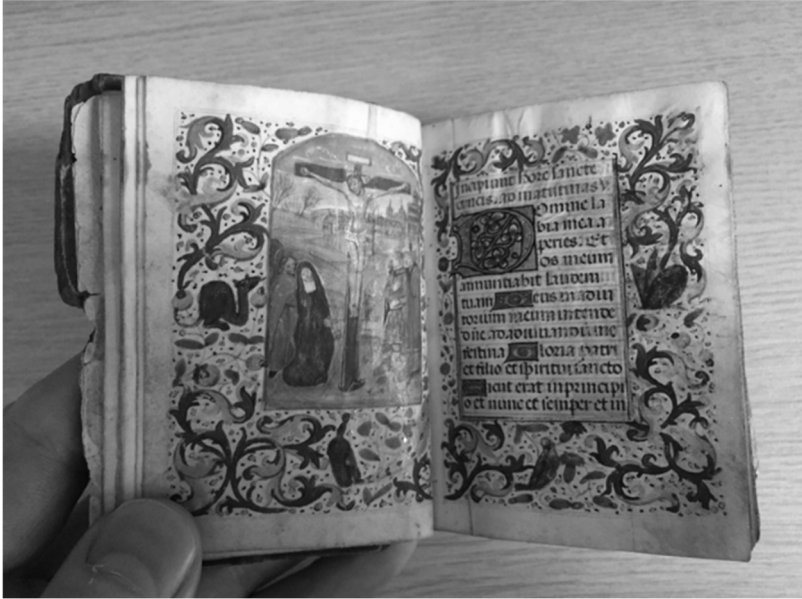 Incipiunt hore sancte
crucis. ad matutinas v.
Domine la
bia mea a
peries. Et
os meum
annuntiabit laudem
tuam Deus in adiu
torium meum intende
dne ad adiuvandum me
festina Gloria patri
et filio et spiritui sancto
Sicut erat in principi
o et nunc et semper et in